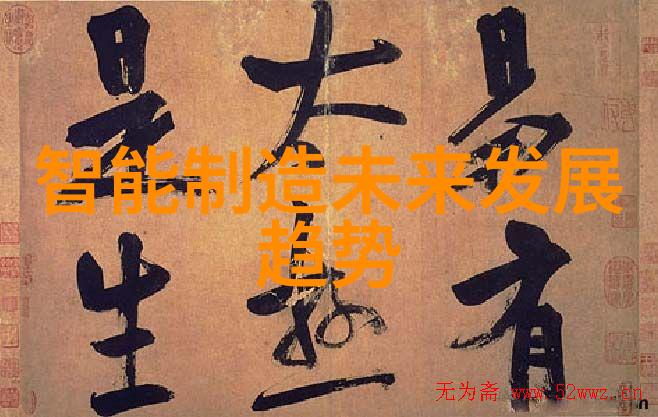 智能制造未来发展
趋势
易有
太極
是生
无为斋 www.52wwz.cn